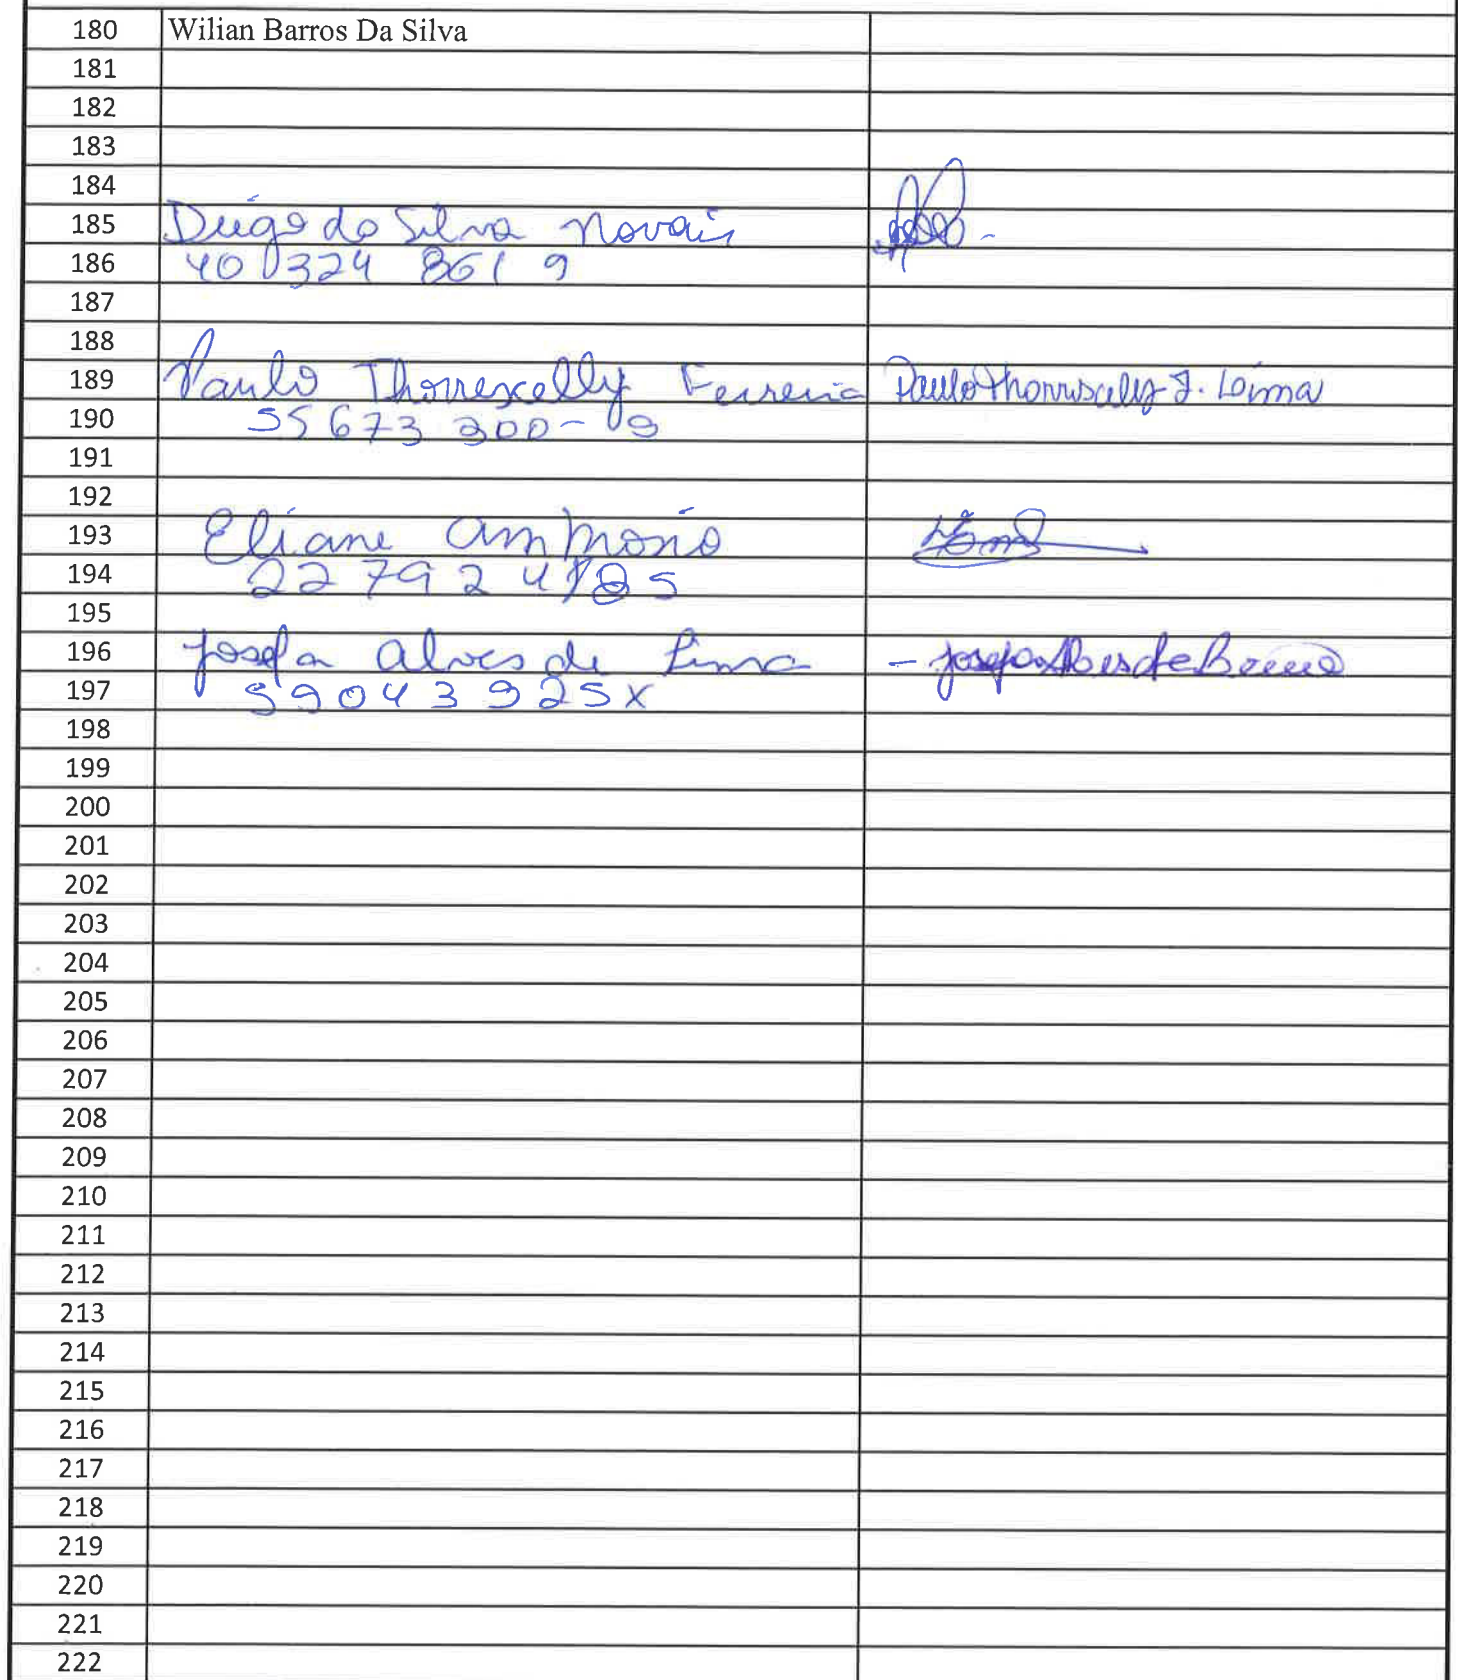 180 Wilian Barros Da Silva
181
182
183
184
185 Diego da Silva Novais
186 40 324 861 9
187
188
189 Paulo Thorrescelly Ferreira Paulo Thorriscelly F. Lima
190 55 673 300-9
191
192
193 Eliane
194 22 79 2 4
195
196 Josefa Alves de Lima - Josefa Alves de
197 59043925X
198
199
200
201
202
203
204
205
206
207
208
209
210
211
212
213
214
215
216
217
218
219
220
221
222